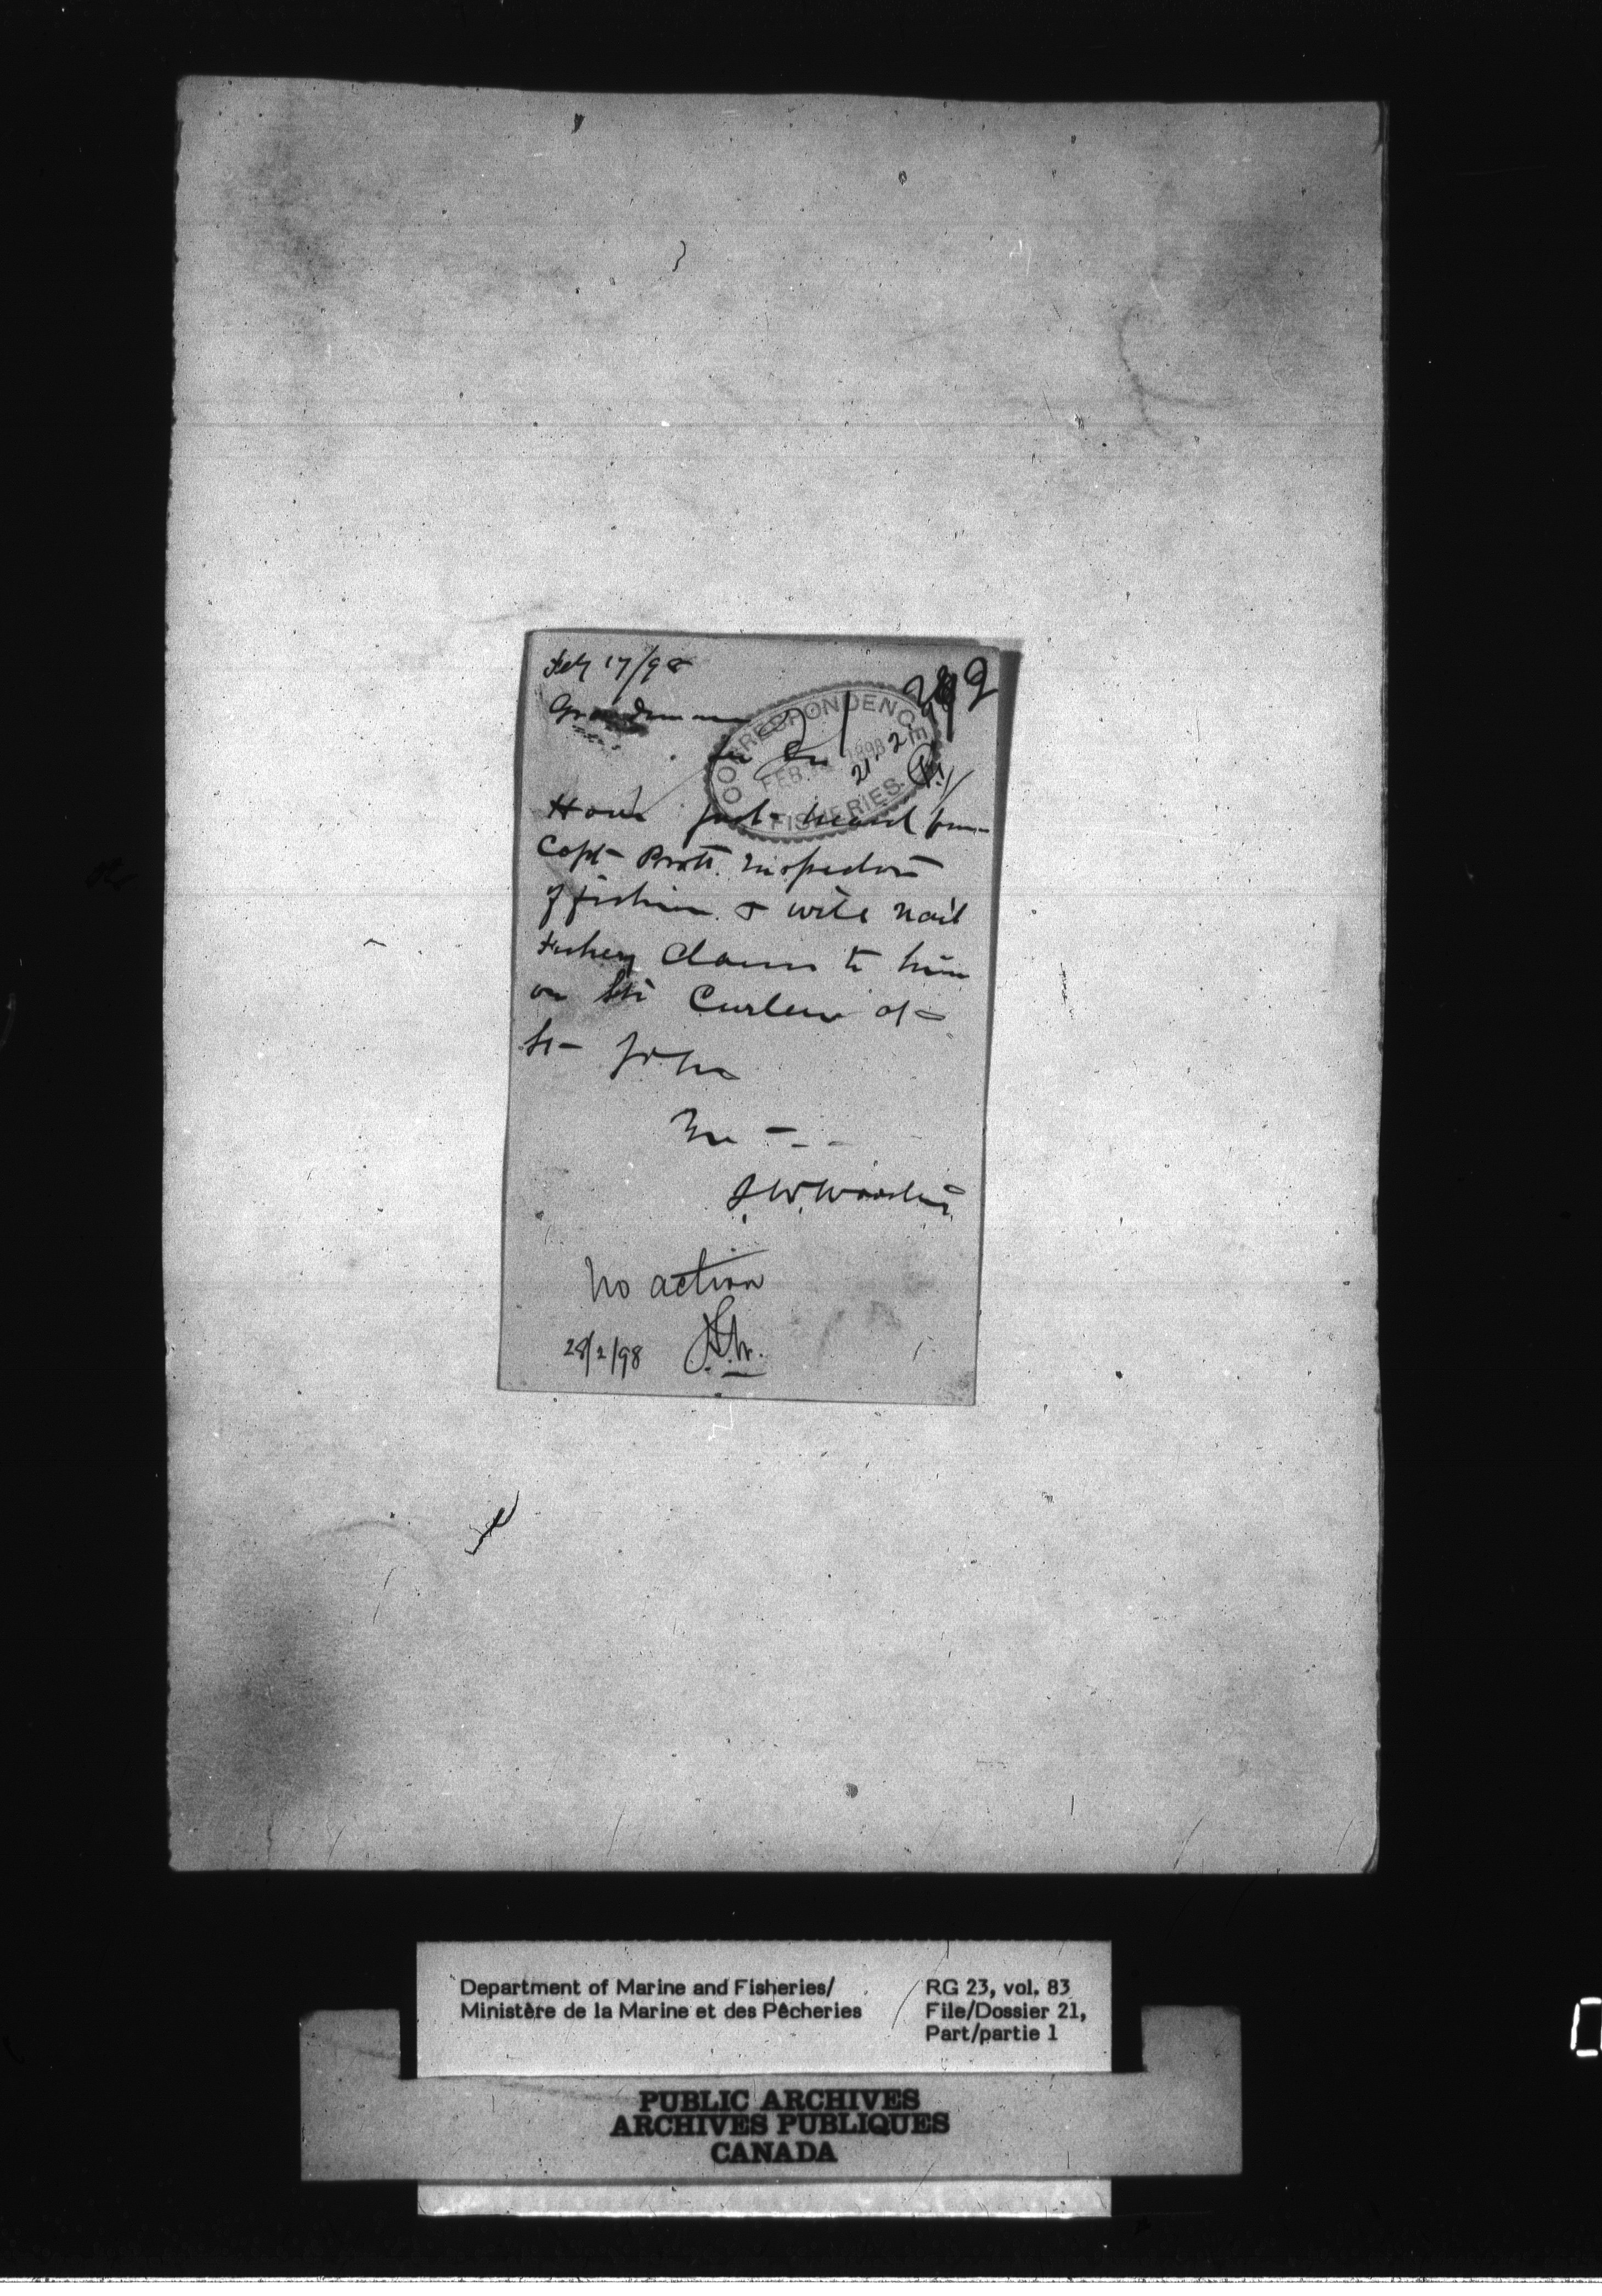 Feb 17/98
289
Grand manan
CORRESPONDENCE
FEB. 1898
21-2
FISHERIES.
Dr Sir
Have just heard from
Capt Pratt. Inspector
of fisheries. & will mail
Fishery Claims to him
on Str Curlew at
St John
Yrs - - -
no action
28/2/98
Department of Marine and Fisheries/
Ministère de la Marine et des Pêcheries
RG 23, vol. 83
File/Dossier 21,
Part/partie 1
PUBLIC ARCHIVES
ARCHIVES PUBLIQUES
CANADA